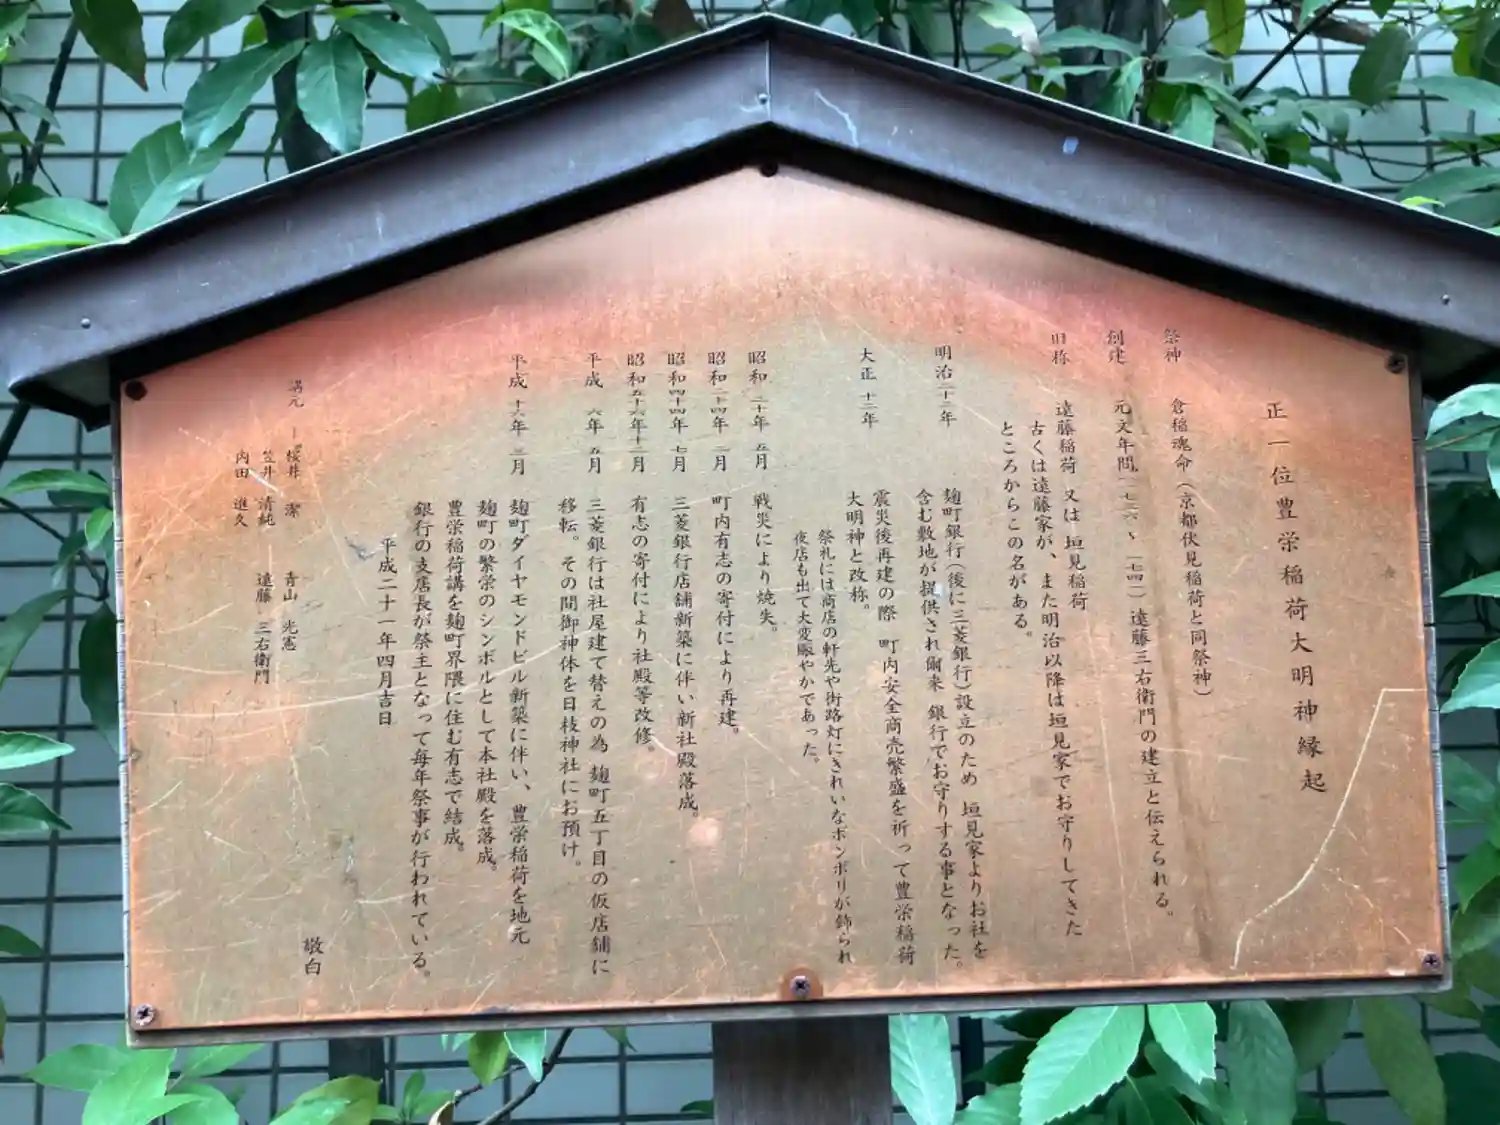 正一位豊栄稲荷大明神縁起
祭神　倉稲魂命（京都伏見稲荷と同祭神）
創建　元文年間（一七三六～一七四一）遠藤三右衛門の建立と伝えられる。
旧称　遠藤稲荷　又は　垣見稲荷
古くは遠藤家が、また明治以降は垣見家でお守りしてきた
ところからこの名がある。
明治二十二年　麹町銀行（後に三菱銀行）設立のため　垣見家よりお社を
含む敷地が提供され爾来　銀行でお守りする事となった。
大正　十二年　震災後再建の際　町内安全商売繁盛を祈って豊栄稲荷
大明神と改称。
祭礼には商店の軒先や街路灯にきれいなボンボリが飾られ
夜店も出て大変賑やかであった。
昭和　二十年　五月　戦災により焼失。
昭和　二十四年　二月　町内有志の寄付により再建。
昭和四十四年　七月　三菱銀行店舗新築に伴い新社殿落成。
昭和五十六年十二月　有志の寄付により社殿等改修。
平成　六年　五月　三菱銀行は社屋建て替えの為　麹町五丁目の仮店舗に
移転。その間御神体を日枝神社にお預け。
平成　十六年　三月　麹町ダイヤモンドビル新築に伴い、豊栄稲荷を地元
麹町の繁栄のシンボルとして本社殿を落成。
豊栄稲荷講を麹町界隈に住む有志で結成。
銀行の支店長が祭主となって毎年祭事が行われている。
平成二十一年四月吉日
敬白
講元　桜井　潔　青山　光憲
笠井　清純　遠藤　三右衛門
内田　進久